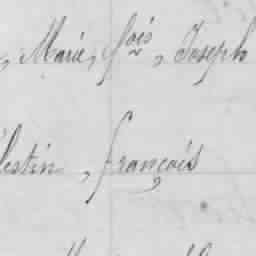 , Marie, fois, Joseph
lestin, françois